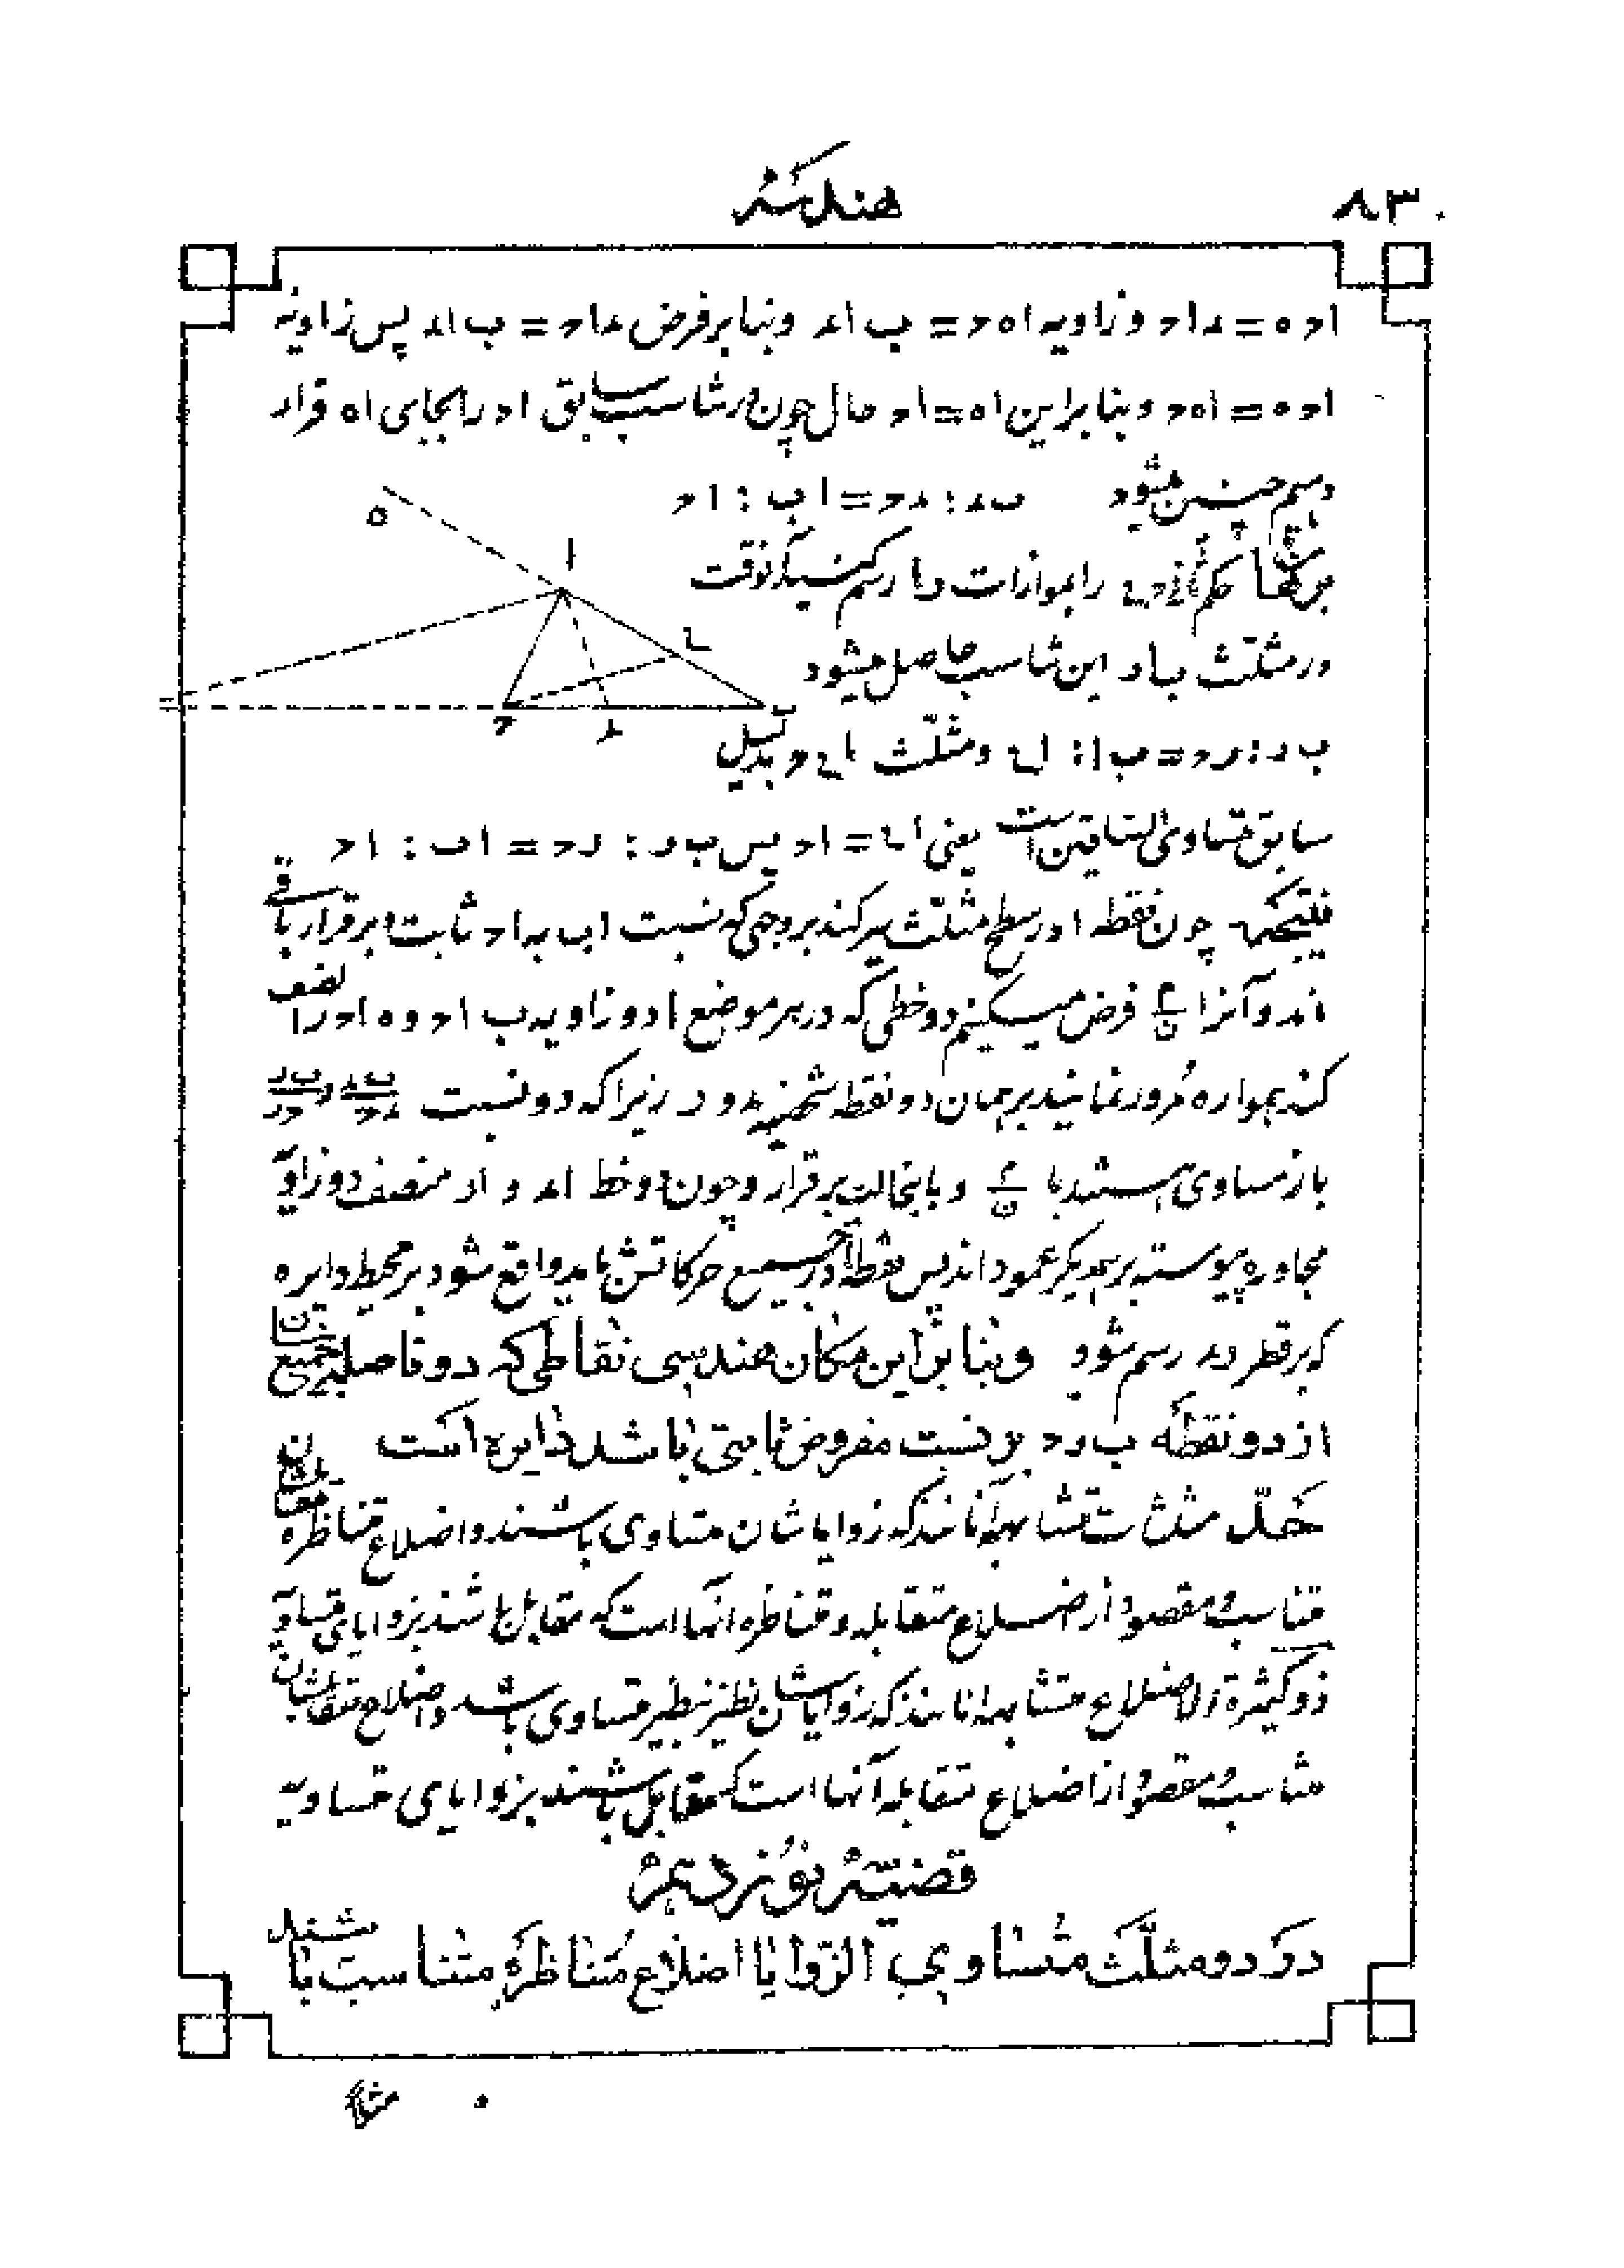 ۸۳
هندسه
ا ح ه = د ا ح و زاویه ا ه ح = ب ا د و بنا بر فرض د ا ح = ب ا د پس زاویه
ا ح ه = ا ه ح و بنا براین ا ه = ا ح حال چون در تناسب سابق ا ح را بجای ا ه قرار
دهیم چنین میشود ب د : د ح = ا ب : ا ح
برای حکم ثانی را بموازات را رسم کنید آنوقت
در مثلث ب ا ر این تناسب حاصل میشود
ب ر : ر ح = ب ا : ا ع و مثلث ا ع ح بدلیل
سابق متساوی الساقین است یعنی ا ع = ا ح پس ب ر : ر ح = ا ب : ا ح
نتیجه چون نقطه ا در سطح مثلث سیر کند بر وجهی که نسبت ا ب به ا ح ثابت و برقرار باقی
ماند و آنرا م/ن فرض میکنیم دو خطی که در هر موضع ا دو زاویه ب ا ح و ه ا ح را نصف
کند همواره مرور نمایند بر همان دو نقطه د و ر زیرا که دو نسبت ب د/د ح و ب ر/ح ر
باز مساوی هستند با م/ن و باینحالت برقرار و چون دو خط ا د و ا ر منصف دو زاویه
مجاوره پیوسته بر یکدیگر عمود اند پس نقطه ا در جمیع حرکاتش باید واقع شود بر محیط دایره
که بر قطر د ر رسم شود و بنا براین مکان هندسی نقاطی که دو فاصله جمیع آن
از دو نقطه ب و ح بر نسبت مفروض ثابتی باشد دایره است
حد مثلثات متشابهه آنانند که زوایاشان متساوی باشند و اضلاع متناظره
متناسب و مقصود از اضلاع متقابله و متناظره آنها است که مقابل باشند بزوایای متساویه
ذو کثیرة الاضلاع متشابهه آنانند که زوایاشان نظیر بنظیر متساوی باشد و اضلاع متقابلشان
متناسب و مقصود از اضلاع متقابله آنها است که مقابل باشند بزوایای متساویه
قضیه نوزدهم
در دو مثلث متساوی الزوایا اضلاع متناظره متناسب باشند
مثلا